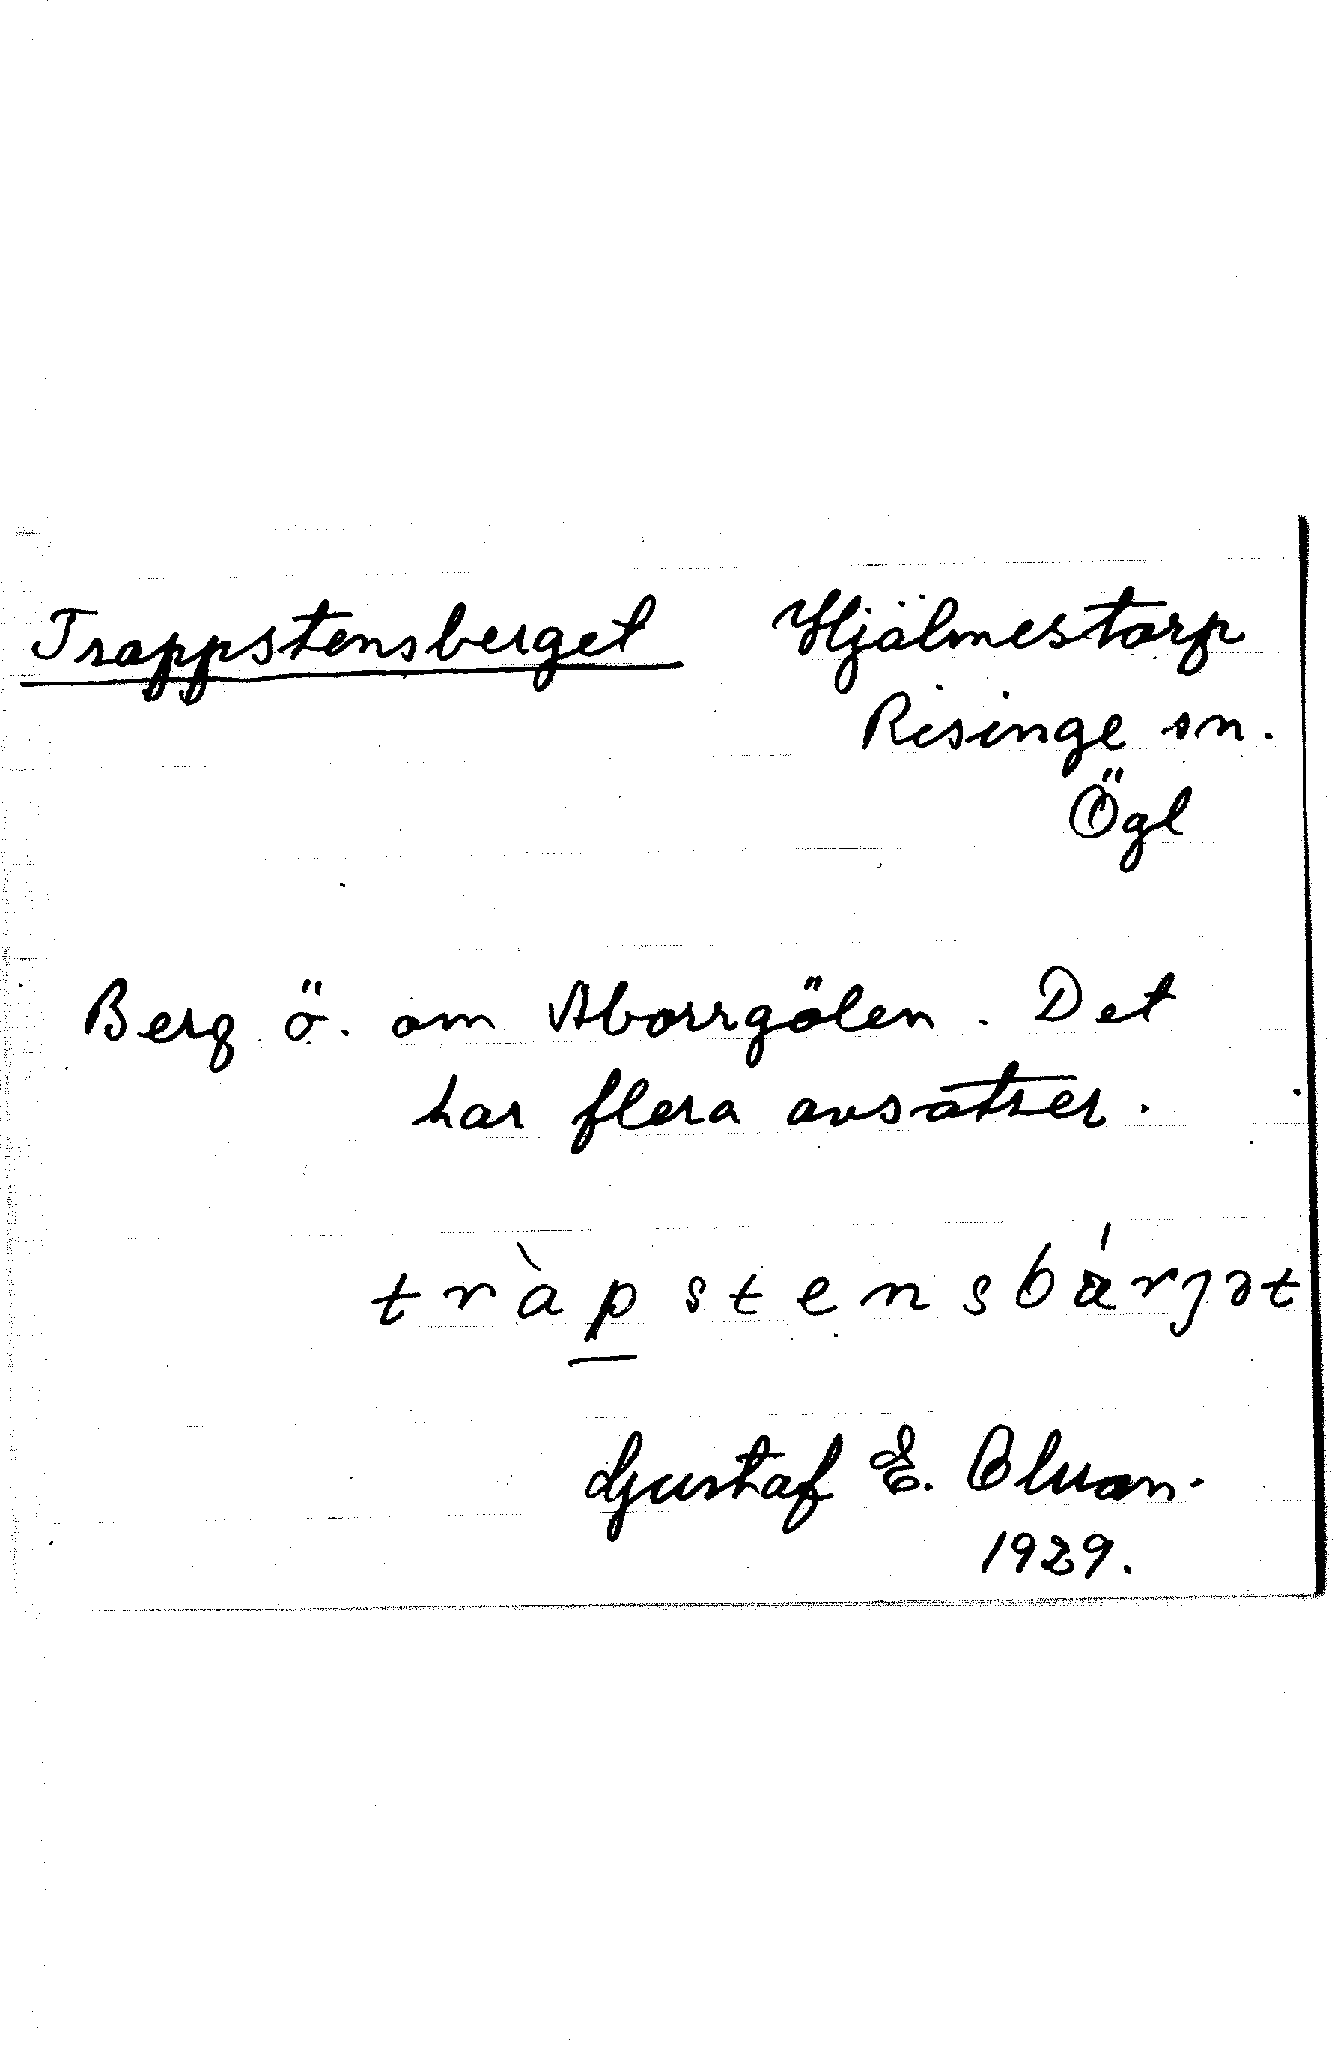 Trappstensberget Hjälmestorp
Risinge sn.
Ögl
Berg ö. om Aborrgölen. Det
har flera avsatser.
tràpstensbárjət
Gustaf E. Bluan.
1929.